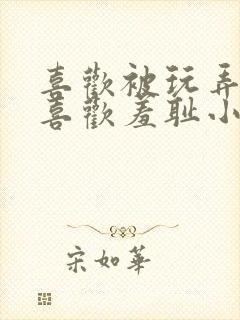 喜歡被玩弄
喜歡羞耻小
宋如華